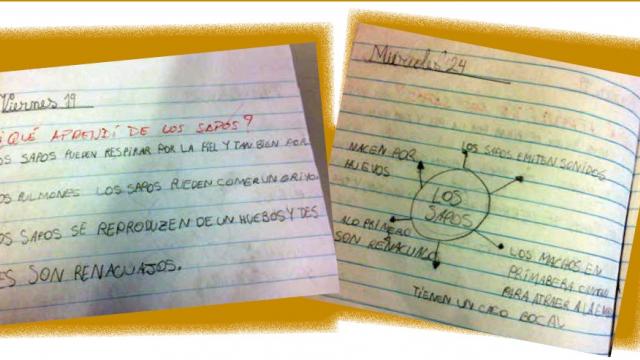 Viernes 19
¿QUÉ APRENDÍ DE LOS SAPOS?
LOS SAPOS PUEDEN RESPIRAR POR LA PIEL Y TAN BIEN POR
LOS PULMONES LOS SAPOS PUEDEN COMER UN GRIYO.
LOS SAPOS SE REPRODUZEN DE UN HUEBOS Y DES
ES SON RENACUAJOS.
Miércoles 24
NACEN POR
HUEVOS
LOS SAPOS EMITEN SONIDOS
LOS
SAPOS
ALO PRIMERO
SON RENACUAJO
LOS MACHOS EN
PRIMABERA
PARA ATRAER A LA
TIENEN UN SACO BOCAL